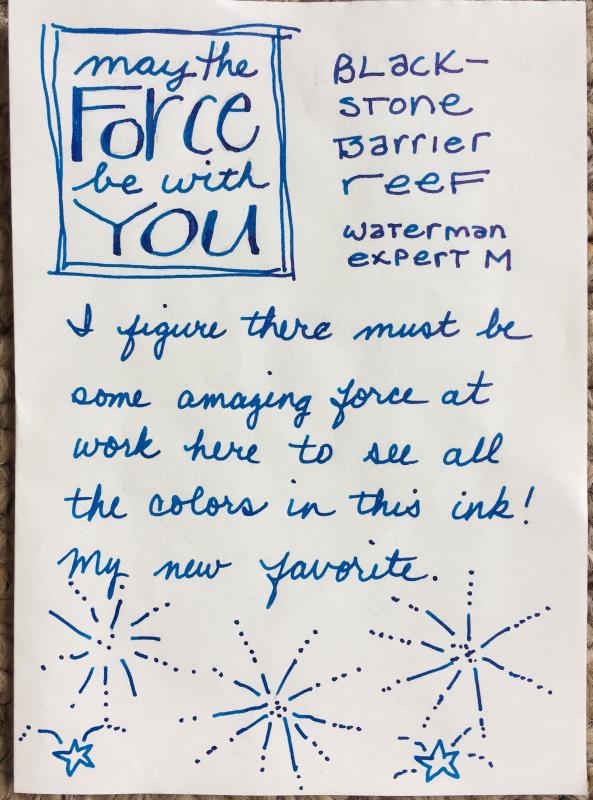 may the
Force
be with
YOU
BLack-
STone
Barrier
reeF
waterman
experT M
I figure there must be
some amazing force at
work here to see all
the colors in this ink!
My new favorite.